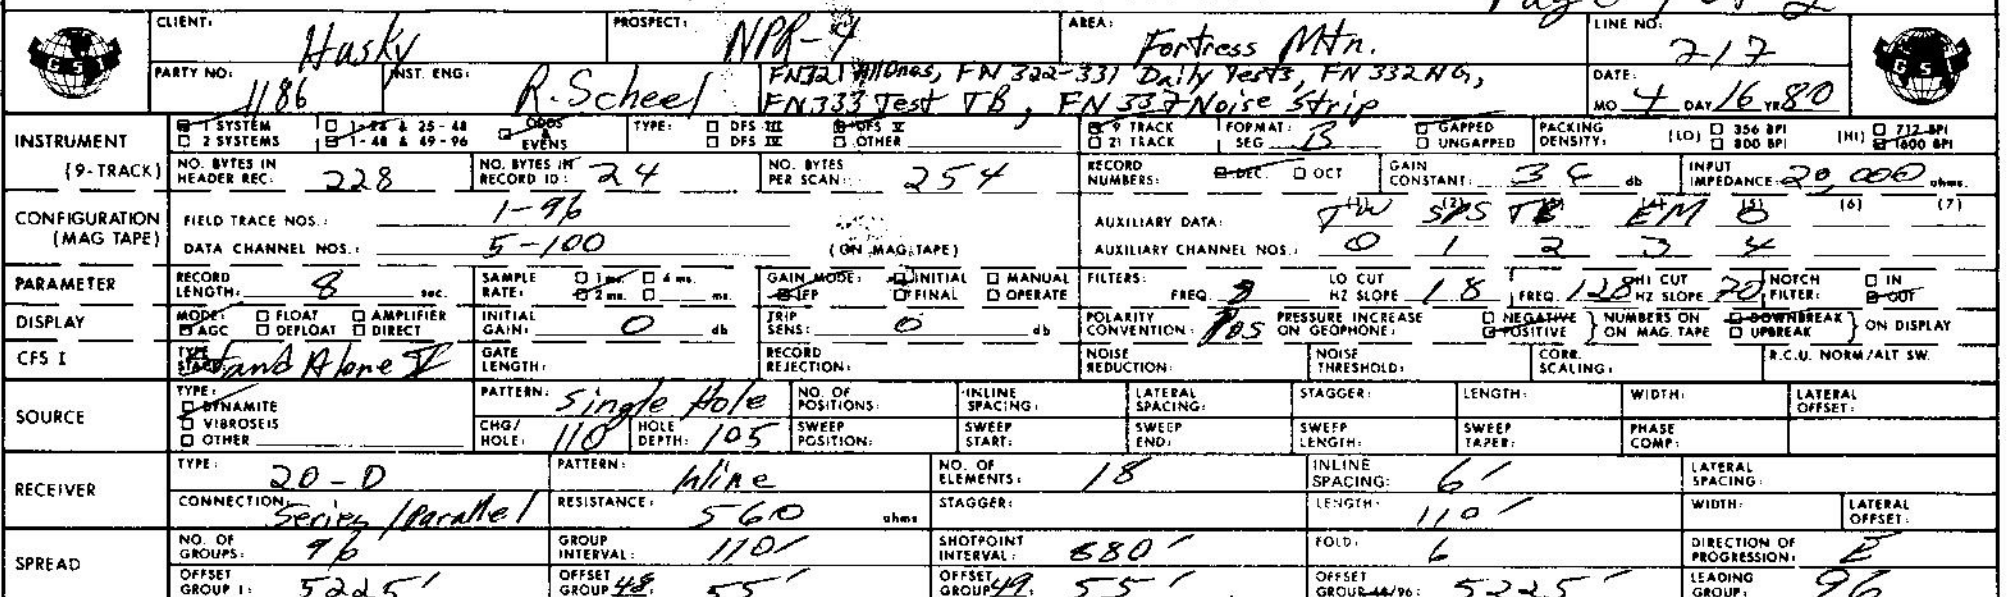 Page 1 of 2
CLIENT: Husky PROSPECT: NPR-4 AREA: Fortress Mtn. LINE NO: 217
GSI
PARTY NO: 1186 INST. ENG: R. Scheel FN321 All Ones, FN 322-331 Daily Tests, FN 332 NG, DATE:
FN333 Test TB, FN 337 Noise Strip MO 4 DAY 16 YR 80
GSI
INSTRUMENT 1 SYSTEM 1-24 & 25-48 ODDS TYPE: DFS III DFS V 9 TRACK FORMAT: B GAPPED PACKING 356 BPI 712 BPI
2 SYSTEMS 1-48 & 49-96 & EVENS DFS IV OTHER 21 TRACK SEG UNGAPPED DENSITY: (LO) 800 BPI (HI) 1600 BPI
(9-TRACK) NO. BYTES IN HEADER REC: 228 NO. BYTES IN RECORD ID: 24 NO. BYTES PER SCAN: 254 RECORD NUMBERS: DEC. OCT GAIN CONSTANT: db INPUT IMPEDANCE: 20,000 ohms.
CONFIGURATION FIELD TRACE NOS.: 1-96 AUXILIARY DATA: (1) TW (2) SPS (3) TB (4) EM (5) 0 (6) (7)
(MAG TAPE) DATA CHANNEL NOS.: 5-100 (ON MAG TAPE) AUXILIARY CHANNEL NOS.: 0 1 2 3 4
PARAMETER RECORD LENGTH: 8 sec. SAMPLE RATE: 1 ms. 4 ms. 2 ms. ms. GAIN MODE: INITIAL MANUAL IFP FINAL OPERATE FILTERS: FREQ. 8 LO CUT HZ SLOPE 18 FREQ. 128 HI CUT HZ SLOPE 70 NOTCH FILTER: IN OUT
DISPLAY MODE: FLOAT AMPLIFIER AGC DEFLOAT DIRECT INITIAL GAIN: 0 db TRIP SENS: 0 db POLARITY CONVENTION: Pos PRESSURE INCREASE ON GEOPHONE: NEGATIVE POSITIVE } NUMBERS ON MAG. TAPE DOWNBREAK UPBREAK } ON DISPLAY
CFS I TYPE Stand Alone V GATE LENGTH: RECORD REJECTION: NOISE REDUCTION: NOISE THRESHOLD: CORR. SCALING: R.C.U. NORM/ALT SW.
SOURCE TYPE: DYNAMITE VIBROSEIS OTHER PATTERN: Single Hole NO. OF POSITIONS: INLINE SPACING: LATERAL SPACING: STAGGER: LENGTH: WIDTH: LATERAL OFFSET:
CHG/HOLE: 110 HOLE DEPTH: 105 SWEEP POSITION: SWEEP START: SWEEP END: SWEEP LENGTH: SWEEP TAPER: PHASE COMP:
RECEIVER TYPE: 20-D PATTERN: Inline NO. OF ELEMENTS: 18 INLINE SPACING: 6' LATERAL SPACING:
CONNECTION: Series/parallel RESISTANCE: 560 ohms STAGGER: LENGTH: 110' WIDTH: LATERAL OFFSET:
SPREAD NO. OF GROUPS: 96 GROUP INTERVAL: 110' SHOTPOINT INTERVAL: 880' FOLD: 6 DIRECTION OF PROGRESSION: E
OFFSET GROUP 1: 5225' OFFSET GROUP 48: 55' OFFSET GROUP 49: 55' OFFSET GROUP 48/96: 5225' LEADING GROUP: 96